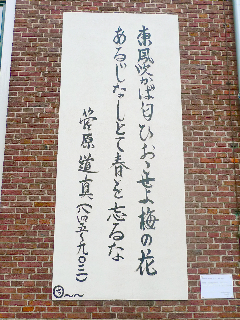 東風吹かば匂ひおこせよ梅の花
あるじなしとて春を忘るな
菅原道真(八四五~九〇三)